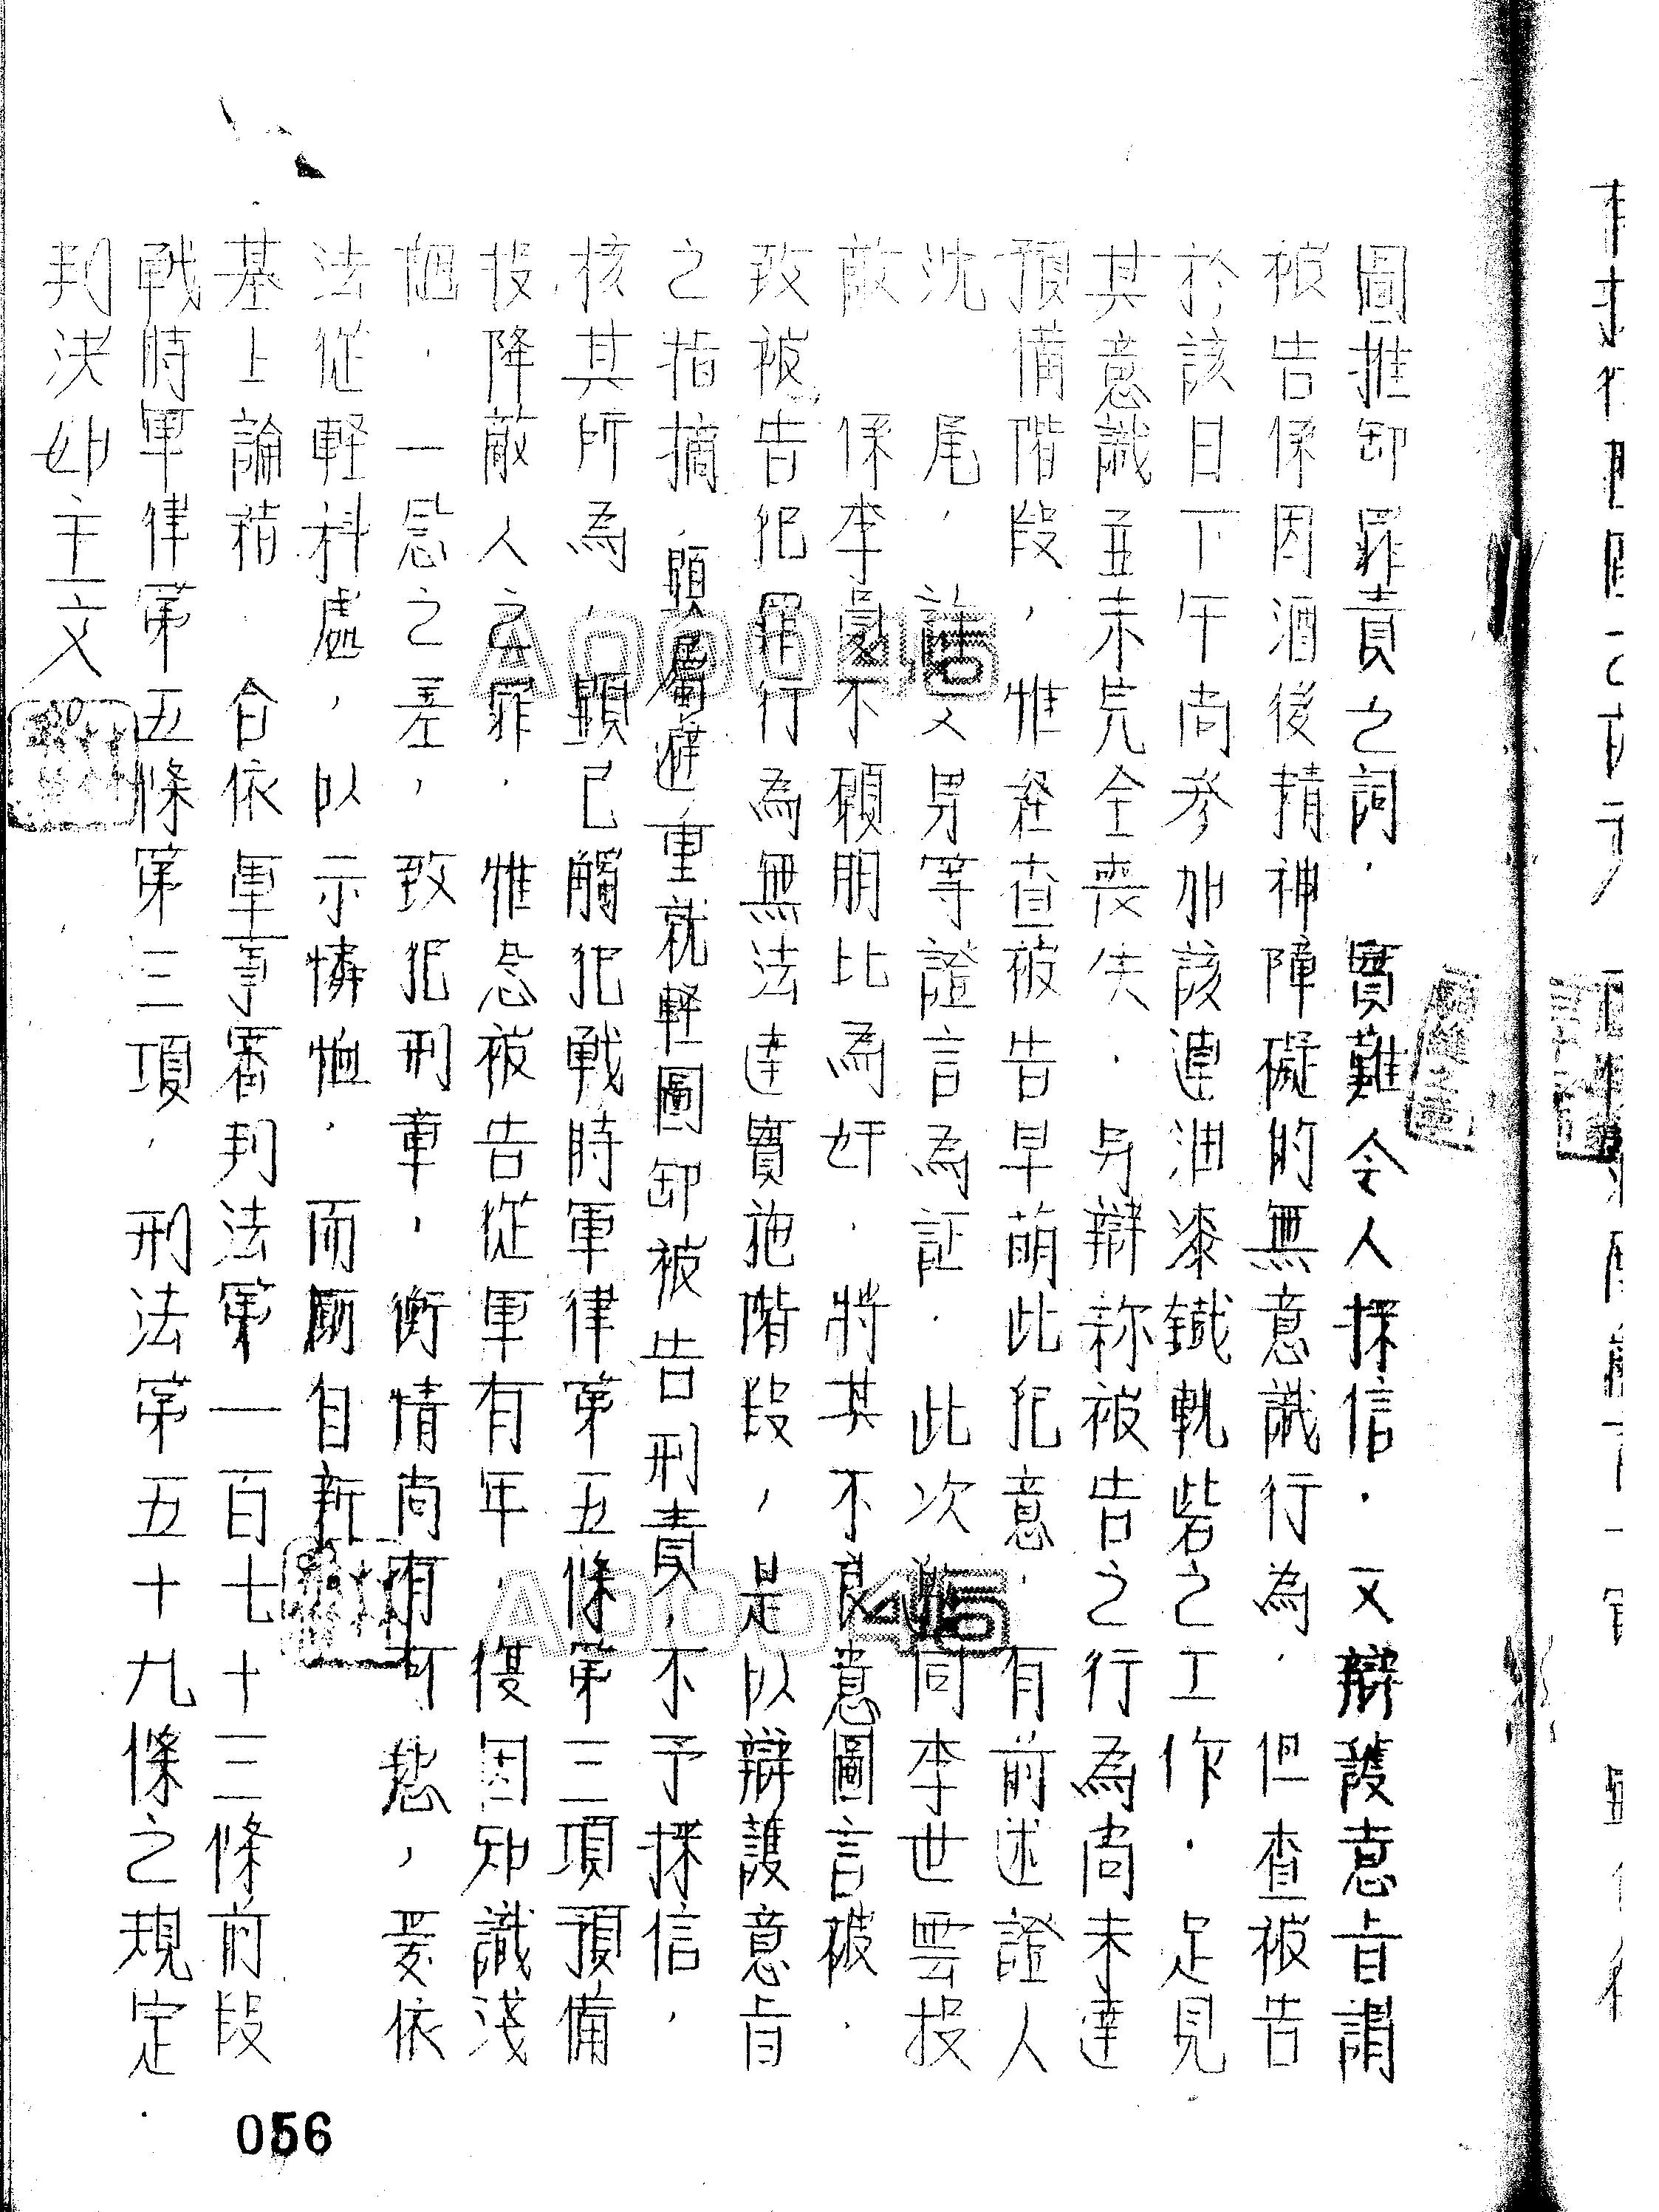 圖推卸罪責之詞．實難令人採信．又辯護意旨謂
被告係因酒後精神障礙的無意識行為．但查被告
於該日下午尚參加該連油漆鐵軌砦之工作．足見
其意識並未完全喪失．另辯稱被告之行為尚未達
預備階段，惟經查被告早萌此犯意．有前述證人
沈　尾，許文男等證言為証．此次同李世雲投
敵　係李憂不願朋比為奸．將其不良意圖言被．
致被告犯罪行為無法達實施階段，是以辯護意旨
之指摘．顯屬避重就輕圖卸被告刑責，不予採信．
核其所為，顯已觸犯戰時軍律第五條第三項預備
投降敵人之罪．惟念被告從軍有年．復因知識淺
　．一念之差，致犯刑章，衡情尚有可愁，爰依
法從輕科處，以示憐恤．而勵自新
基上論結．合依軍事審判法第一百七十三條前段
戰時軍律第五條第三項．刑法第五十九條之規定．
判決如主文
056
A00045
A00045